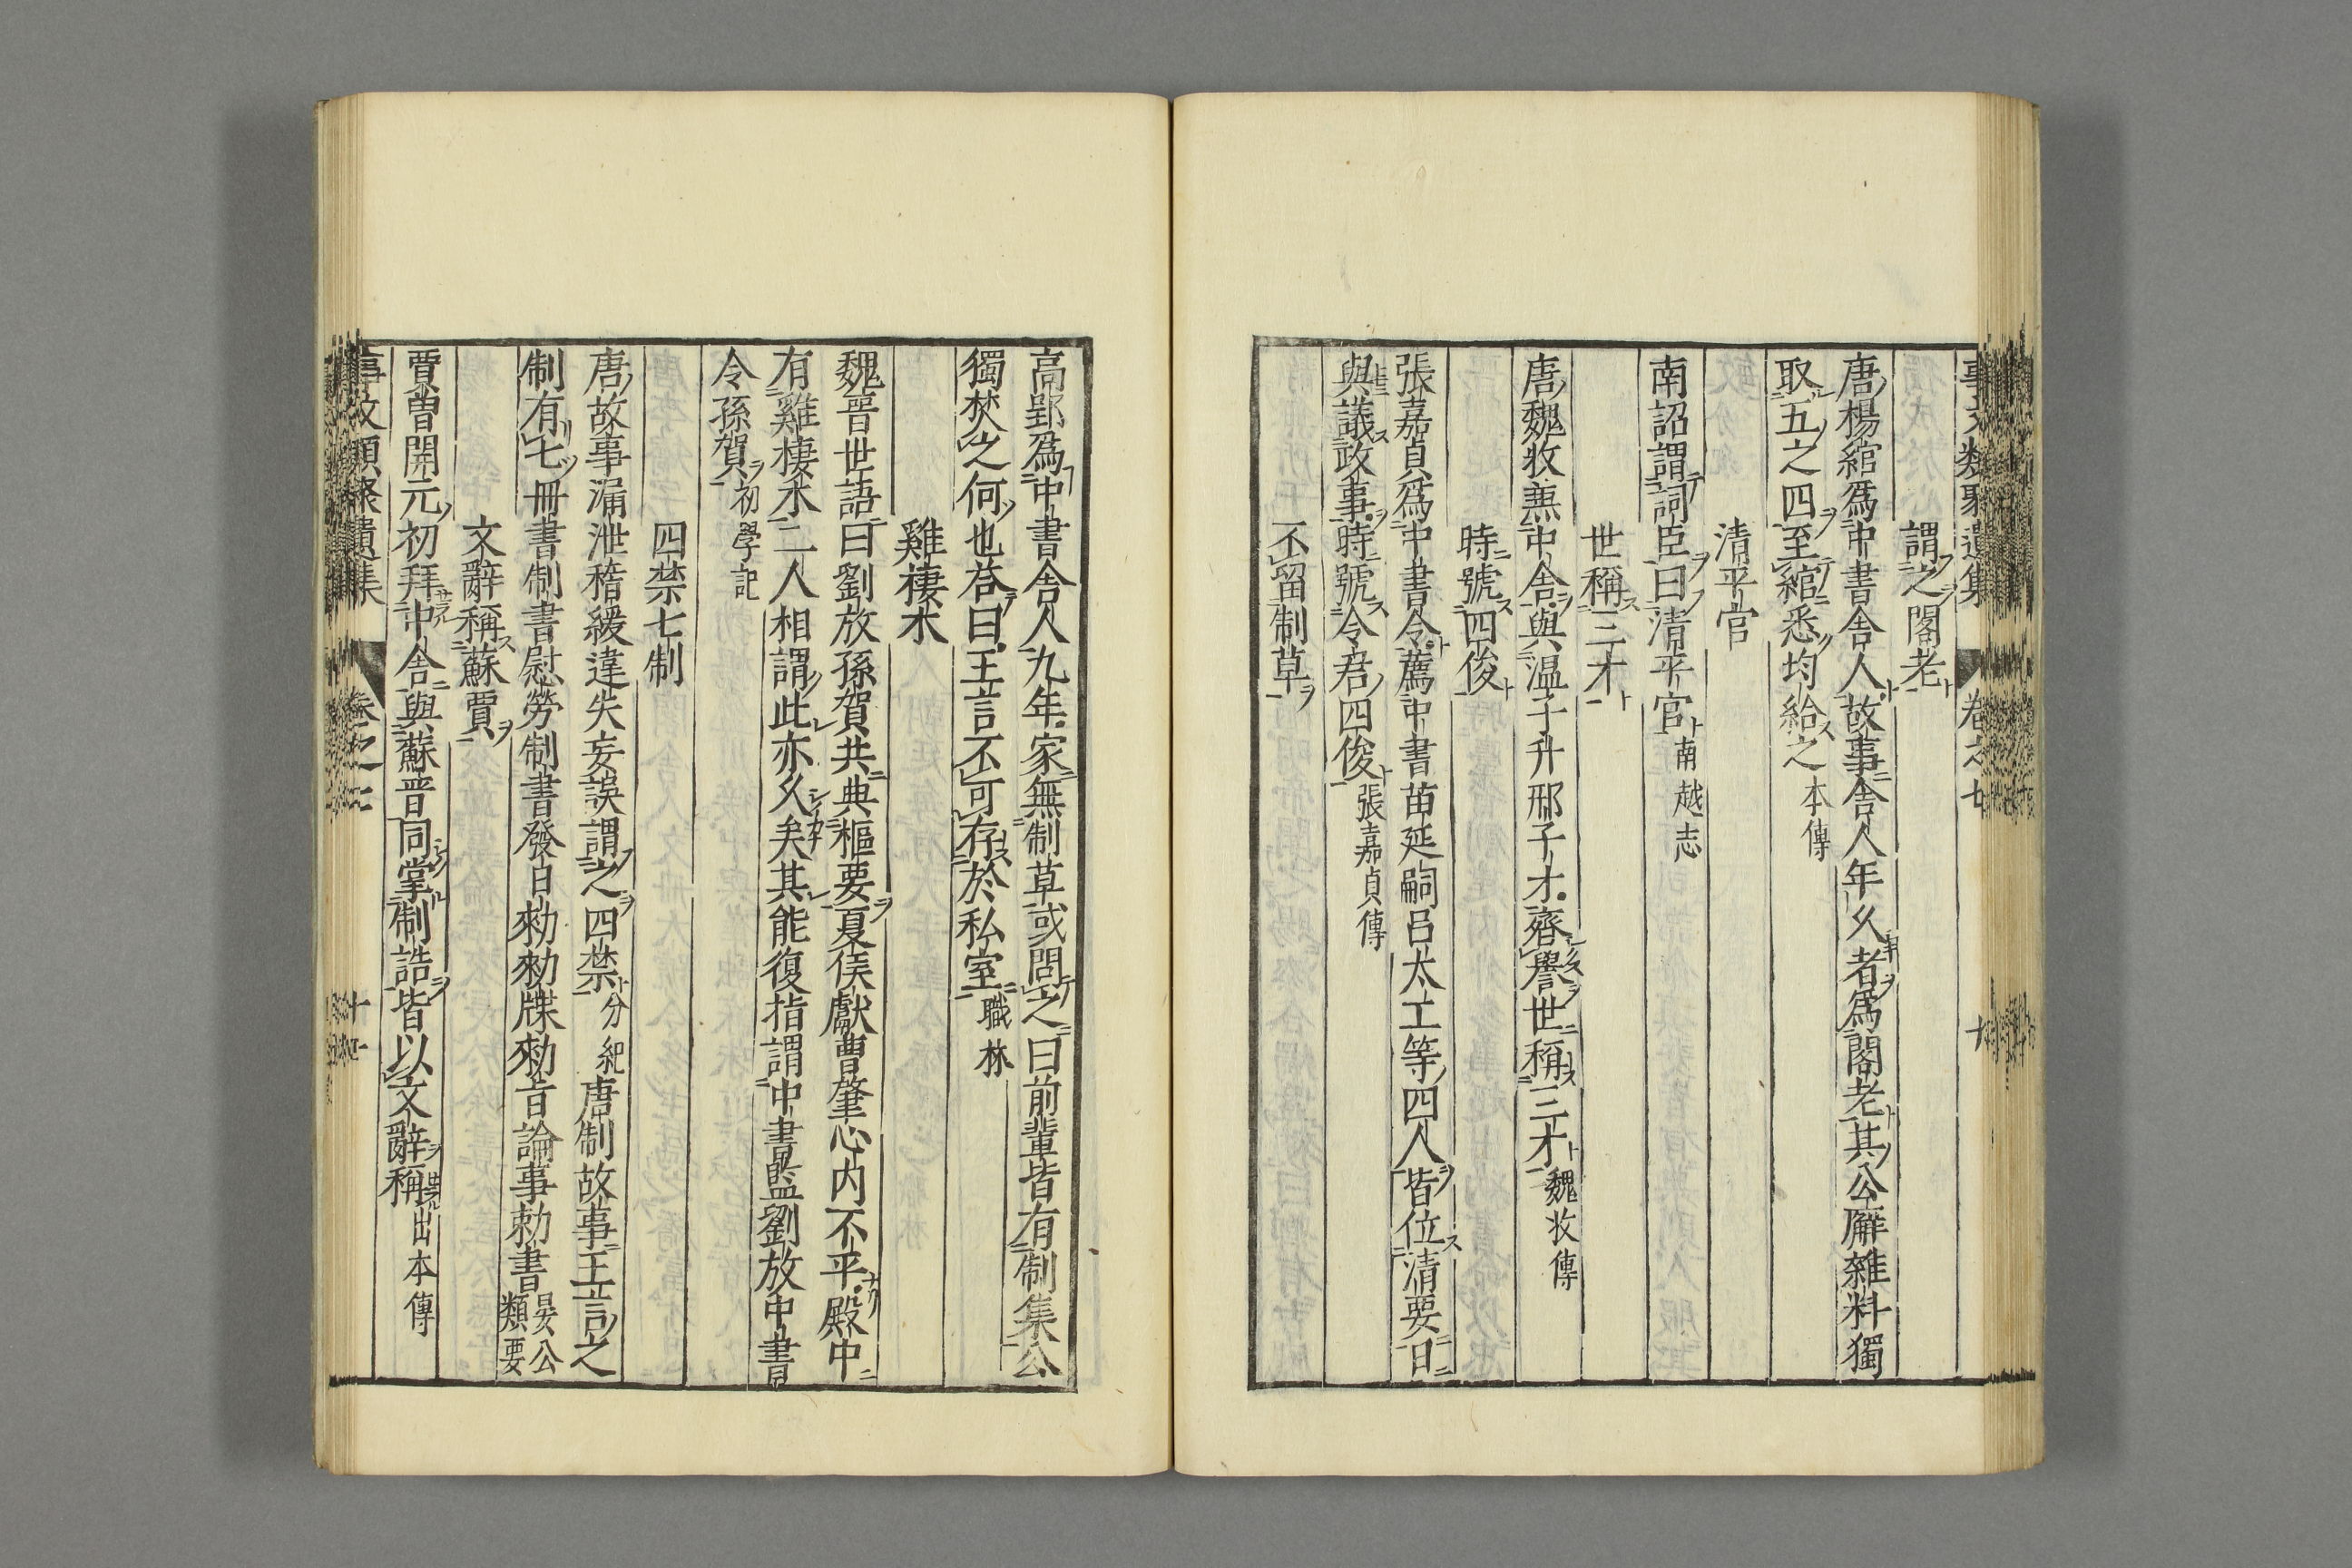 事文類聚遺集 卷之七
謂之閣老
唐楊綰爲中書舍人故事舍人年久者爲閣老其公廨雜料獨
取五之四至綰悉均給之本傳
清平官
南詔謂詞臣曰清平官南越志
世稱三才
唐魏收兼中舍與温子升邢子才齊譽世稱三才魏收傳
時號四俊
張嘉貞爲中書令薦中書苗延嗣呂太工等四人皆位清要日
與議政事時號令君四俊張嘉貞傳
不留制草
高郢爲中書舍人九年家無制草或問之曰前輩皆有制集公
獨焚之何也荅曰王言不可存於私室職林
雞棲木
魏晉世語曰劉放孫賀共典樞要夏侯獻曹肇心内不平殿中
有雞棲木二人相謂此亦久矣其能復指謂中書監劉放中書
令孫賀初學記
四禁七制
唐故事漏泄稽緩違失妄誤謂之四禁分紀唐制故事王言之
制有七冊書制書慰勞制書發白勑勑牒勑音論事勑書晏公類要
文辭稱蘇賈
賈曽開元初拜中舍與蘇晋同掌制誥皆以文辭稱出本傳
事文類聚遺集 卷之七